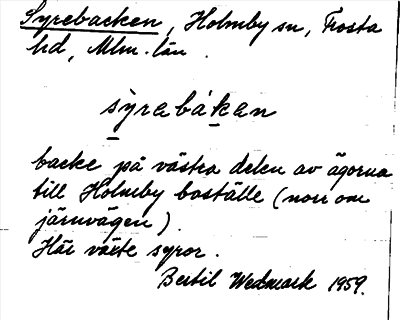 Syrebacken, Holmby sn, Frosta
hd, Mlm. län.
sỳrabákan
backe på västra delen av ägorna
till Holmby boställe (norr om
järnvägen).
Här växte syror.
Bertil Wedmark 1959.